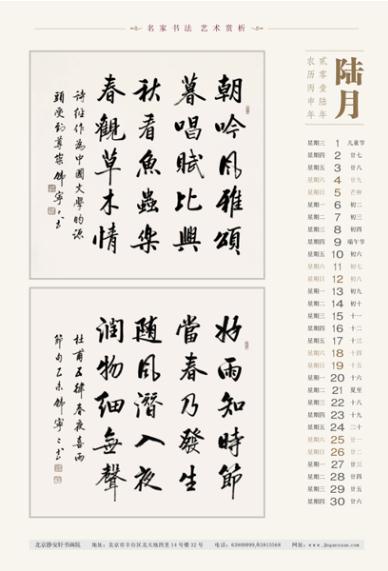 名家书法 艺术赏析
陆月
贰零壹陆年
农历丙申年
朝吟风雅頌
暮唱賦比興
秋看魚蟲樂
春觀草木情
詩经作為中國文學的源
頭受到尊崇
好雨知時節
當春乃發生
随風潛入夜
润物细無聲
杜甫五律春夜喜雨
節句乙未
星期三 1 儿童节
星期四 2 廿七
星期五 3 廿八
星期六 4 廿九
星期日 5 芒种
星期一 6 初二
星期二 7 初三
星期三 8 初四
星期四 9 端午节
星期五 10 初六
星期六 11 初七
星期日 12 初八
星期一 13 初九
星期二 14 初十
星期三 15 十一
星期四 16 十二
星期五 17 十三
星期六 18 十四
星期日 19 十五
星期一 20 十六
星期二 21 夏至
星期三 22 十八
星期四 23 十九
星期五 24 二十
星期六 25 廿一
星期日 26 廿二
星期一 27 廿三
星期二 28 廿四
星期三 29 廿五
星期四 30 廿六
地址：北京市丰台区北大地四里14号楼32号 电话：63800099,83815568 网址：